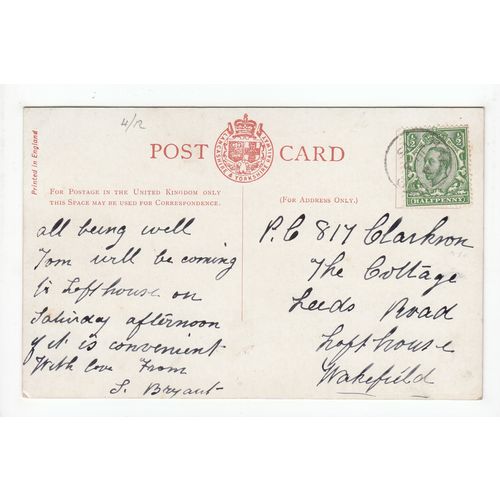 4/12
Printed in England
POST CARD
LANCASHIRE & YORKSHIRE RAILWAY
½ ½
HALFPENNY
FOR POSTAGE IN THE UNITED KINGDOM ONLY
THIS SPACE MAY BE USED FOR CORRESPONDENCE.
(FOR ADDRESS ONLY.)
all being well
Tom will be coming
to Lofthouse on
Saturday afternoon
if it is convenient
With love From
S. Bryant
P.C 817 Clarkson
The Cottage
Leeds Road
Lofthouse
Wakefield